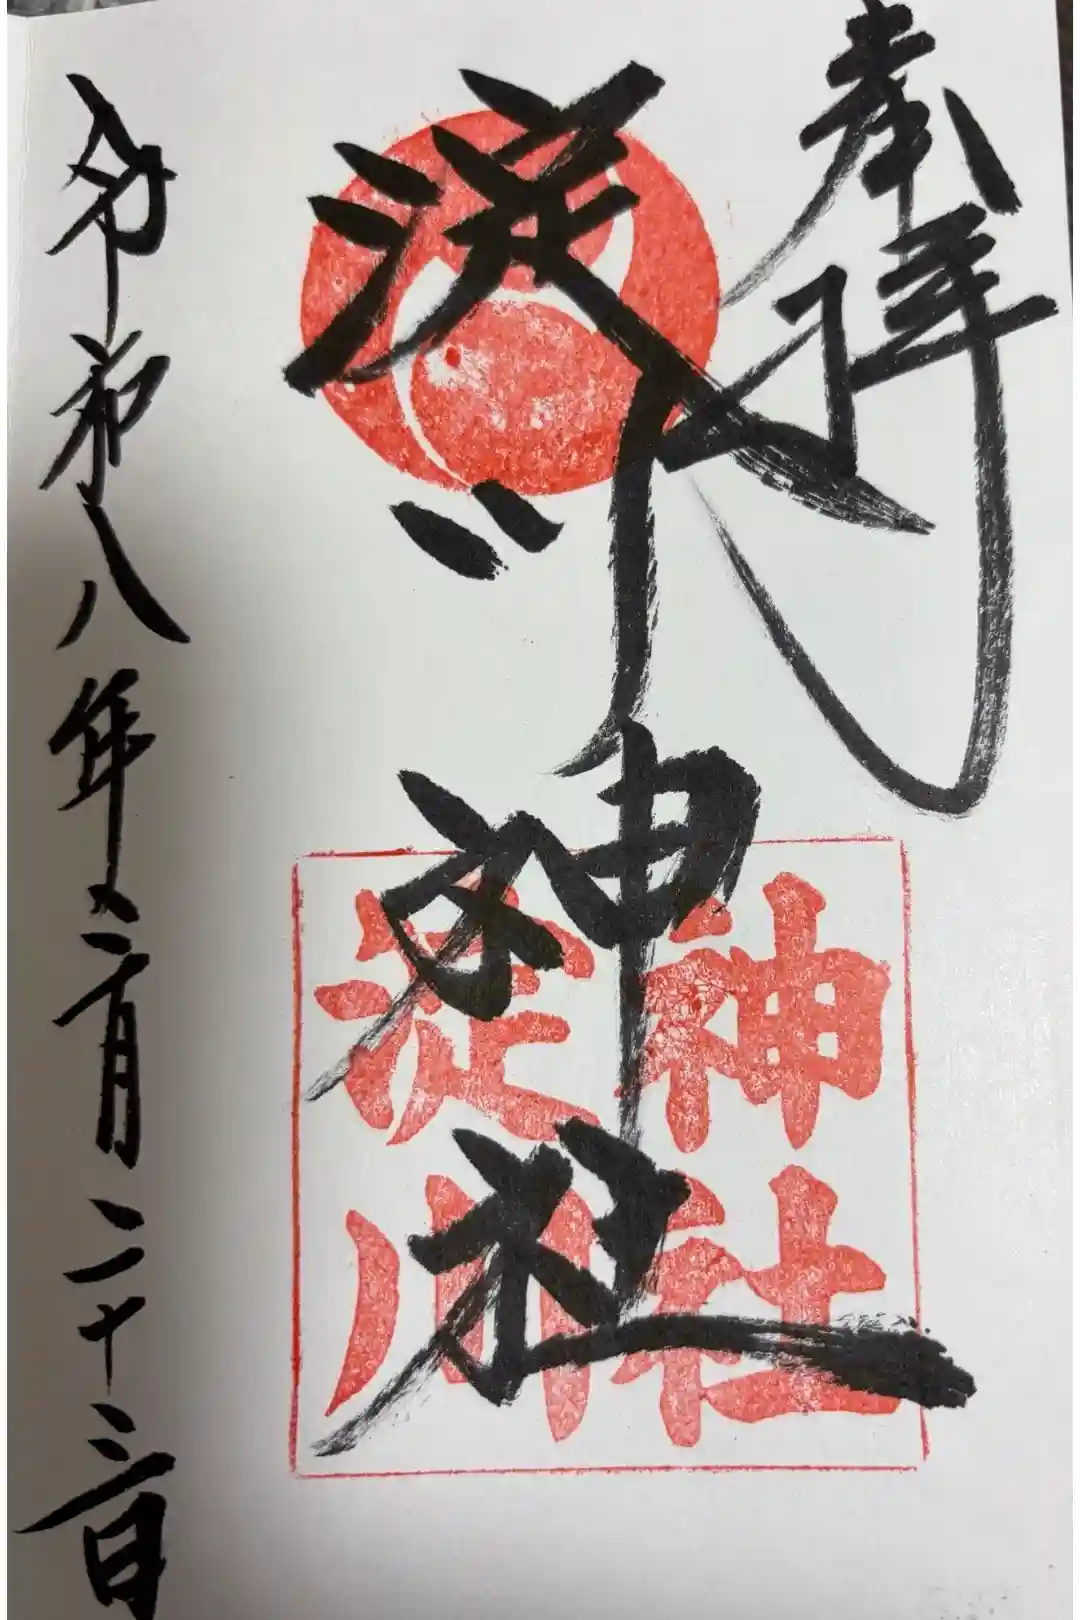 奉拝
淀川神社
令和八年二月二十三日
淀川
神社